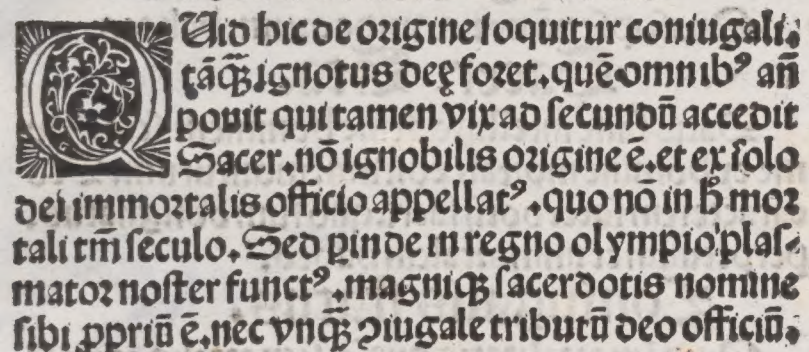 QUid hic de origine loquitur coniugali.
tāq̄ȝ ignotus deꝰ foret. quē omnibꝰ añ
povit qui tamen vix ad secundū accedit
Sacer. nō ignobilis origine ē. et ex solo
dei immortalis officio appellatꝰ. quo nō in h̄ mor
tali tm̄ seculo. Sed ꝑinde in regno olympio plas-
mator noster functꝰ. magniqȝ sacerdotis nomine
sibi ꝓpriū ē. nec vnq̄ȝ ꝯiugale tributū deo officiū.